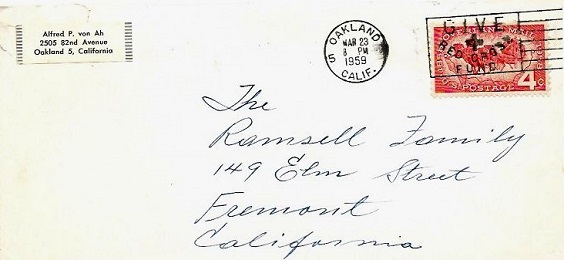 Alfred P. von Ah
2505 82nd Avenue
Oakland 5, California
OAKLAND
5
MAR 23
8 PM
1959
CALIF.
GIVE
RED CROSS
FUND
U.S. POSTAGE 4c
The
Ramsell Family
149 Elm Street
Fremont
California